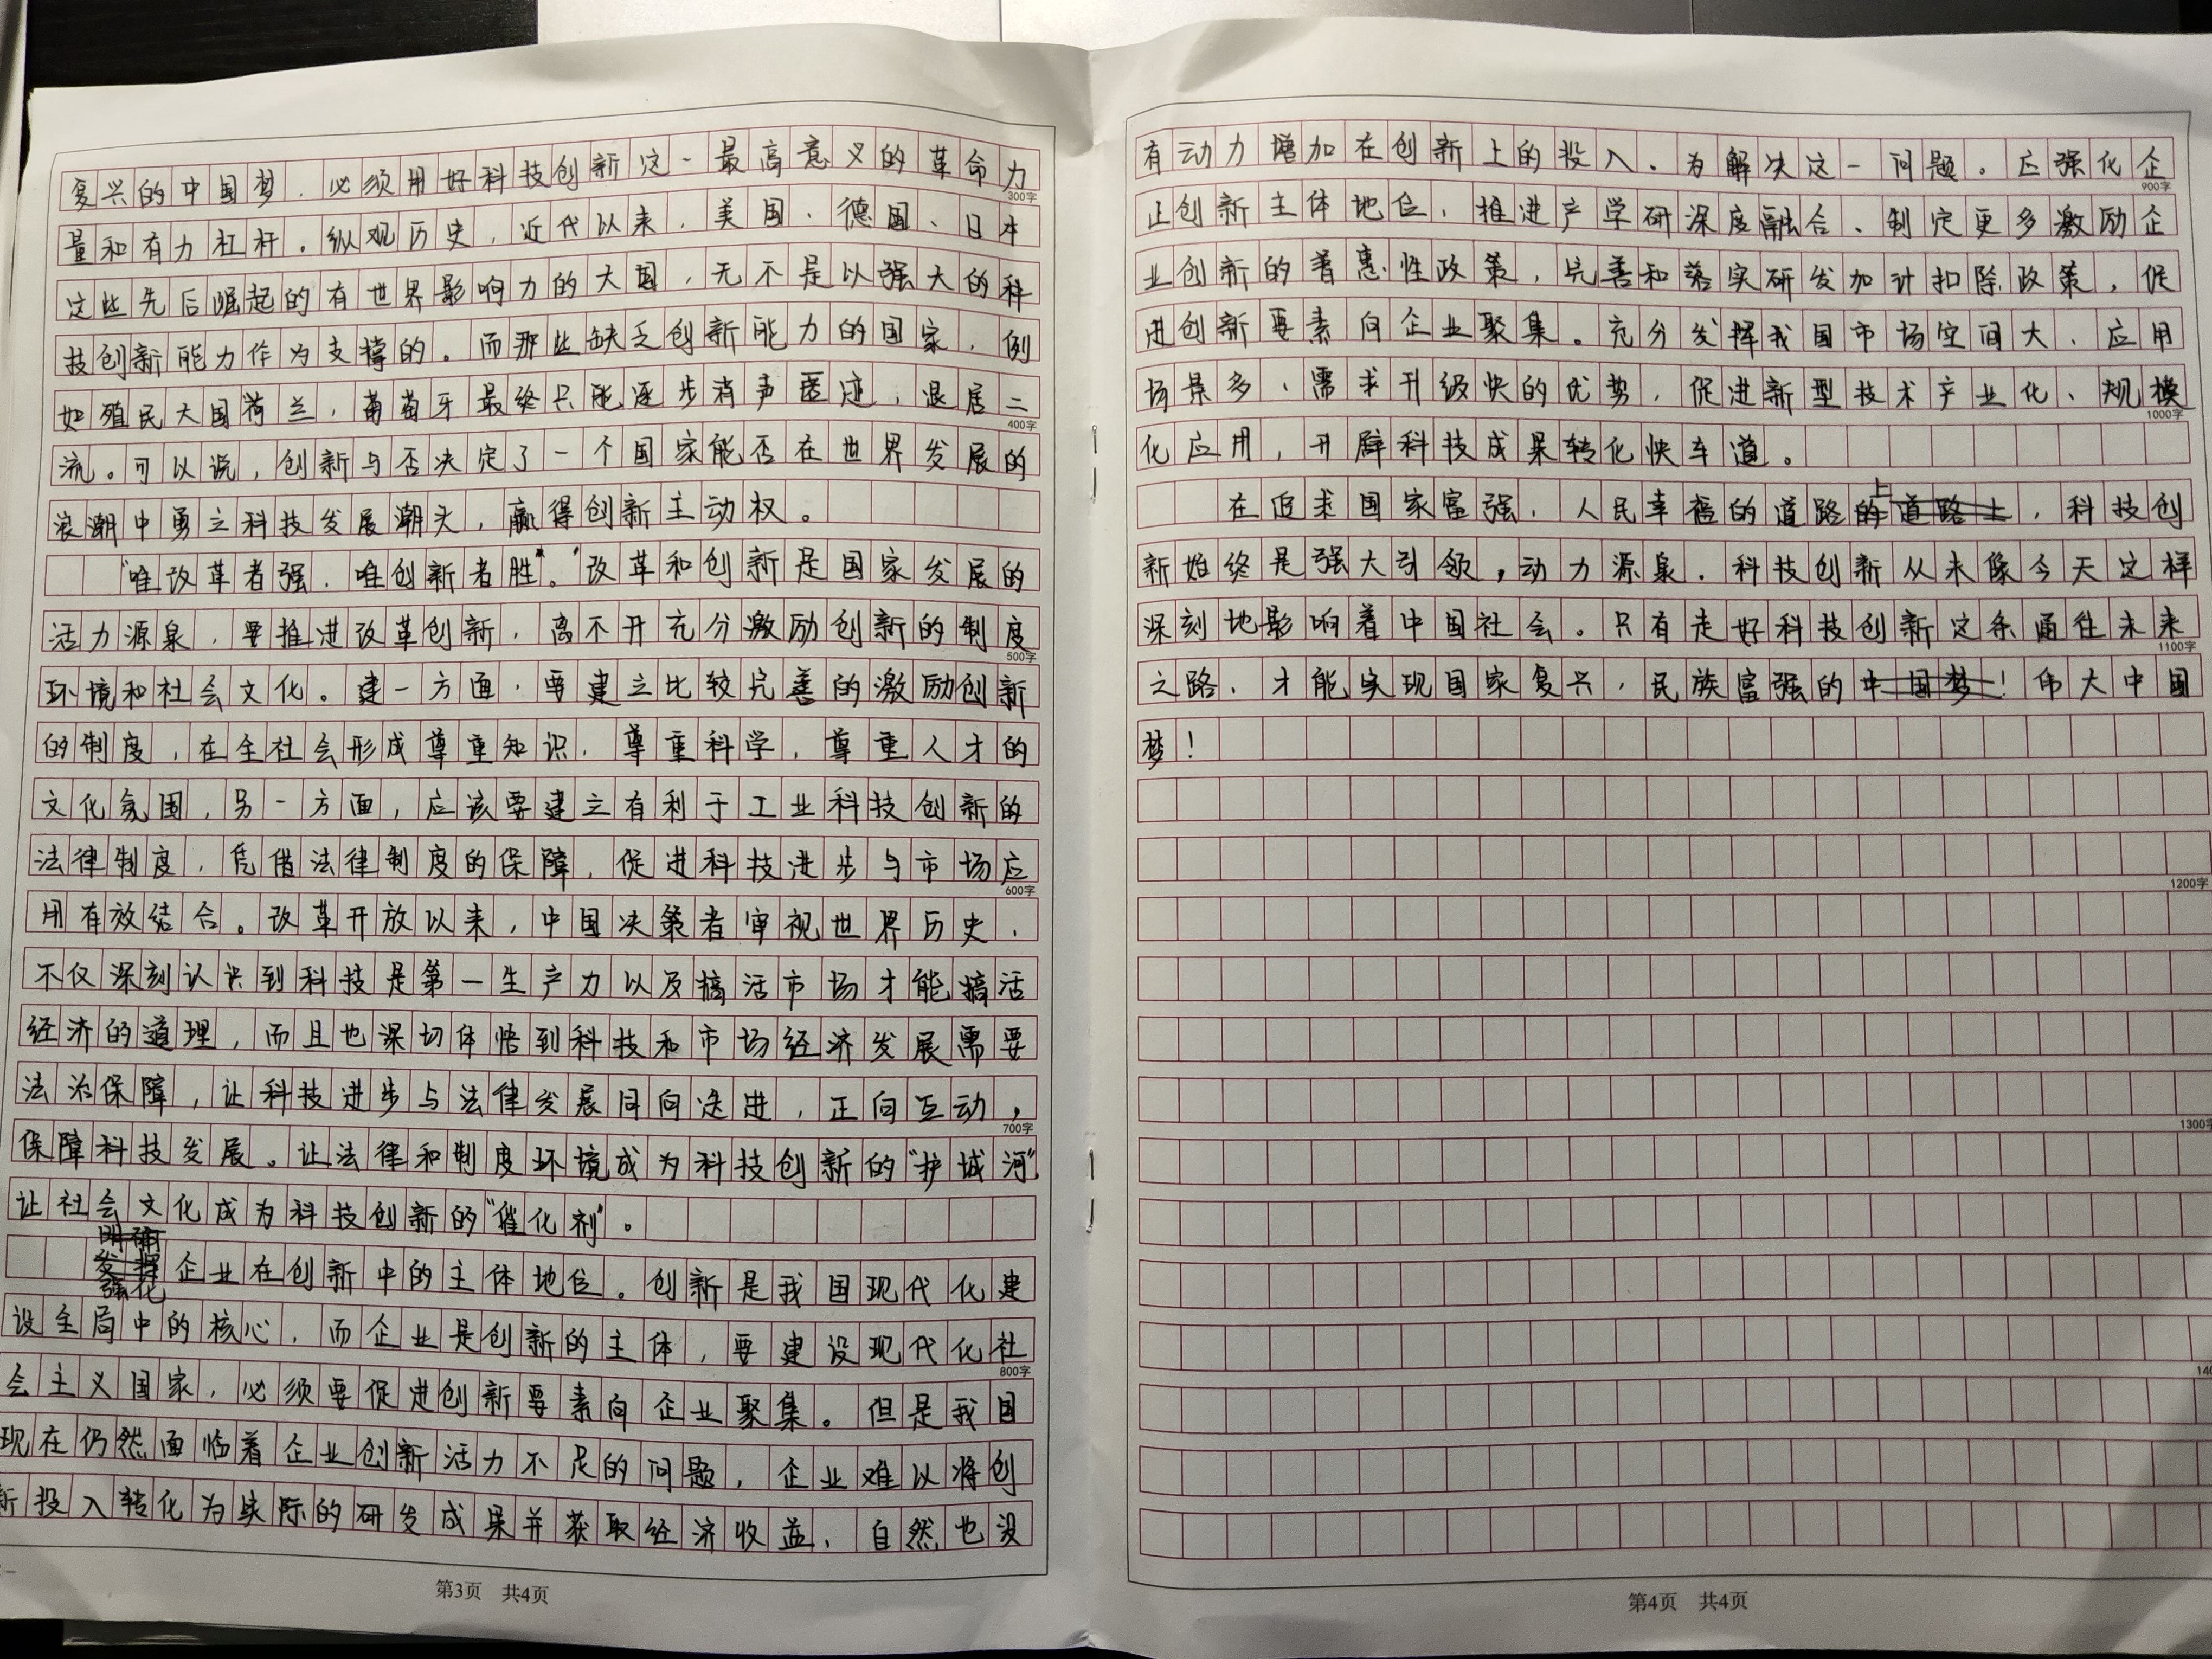 复兴的中国梦，必须用好科技创新这一最高意义的革命力
300字
量和有力杠杆。纵观历史，近代以来，美国、德国、日本
这些先后崛起的有世界影响力的大国，无不是以强大的科
技创新能力作为支撑的。而那些缺乏创新能力的国家，例
如殖民大国荷兰，葡萄牙最终只能逐步消声匿迹，退居二
400字
流。可以说，创新与否决定了一个国家能否在世界发展的
浪潮中勇立科技发展潮头，赢得创新主动权。
“唯改革者强，唯创新者胜”。改革和创新是国家发展的
活力源泉，要推进改革创新，离不开充分激励创新的制度
500字
环境和社会文化。建一方面，要建立比较完善的激励创新
的制度，在全社会形成尊重知识，尊重科学，尊重人才的
文化氛围，另一方面，应该要建立有利于工业科技创新的
法律制度，凭借法律制度的保障，促进科技进步与市场应
600字
用有效结合。改革开放以来，中国决策者审视世界历史，
不仅深刻认识到科技是第一生产力以及搞活市场才能搞活
经济的道理，而且也深切体悟到科技和市场经济发展需要
法治保障，让科技进步与法律发展同向逐进，正向互动，
700字
保障科技发展。让法律和制度环境成为科技创新的“护城河”
让社会文化成为科技创新的“催化剂”。
明确
发挥企业在创新中的主体地位。创新是我国现代化建
强化
设全局中的核心，而企业是创新的主体，要建设现代化社
800字
会主义国家，必须要促进创新要素向企业聚集。但是我国
现在仍然面临着企业创新活力不足的问题，企业难以将创
新投入转化为实际的研发成果并获取经济收益，自然也没
第3页 共4页
有动力增加在创新上的投入。为解决这一问题，应强化企
900字
业创新主体地位，推进产学研深度融合、制定更多激励企
业创新的普惠性政策，完善和落实研发加计扣除政策，促
进创新要素向企业聚集。充分发挥我国市场空间大、应用
场景多、需求升级快的优势，促进新型技术产业化、规模
1000字
化应用，开辟科技成果转化快车道。
上
在追求国家富强，人民幸福的道路的道路上，科技创
新始终是强大引领，动力源泉。科技创新从未像今天这样
深刻地影响着中国社会。只有走好科技创新这条通往未来
1100字
之路，才能实现国家复兴，民族富强的中国梦！伟大中国
梦！
1200字
1300字
140
第4页 共4页